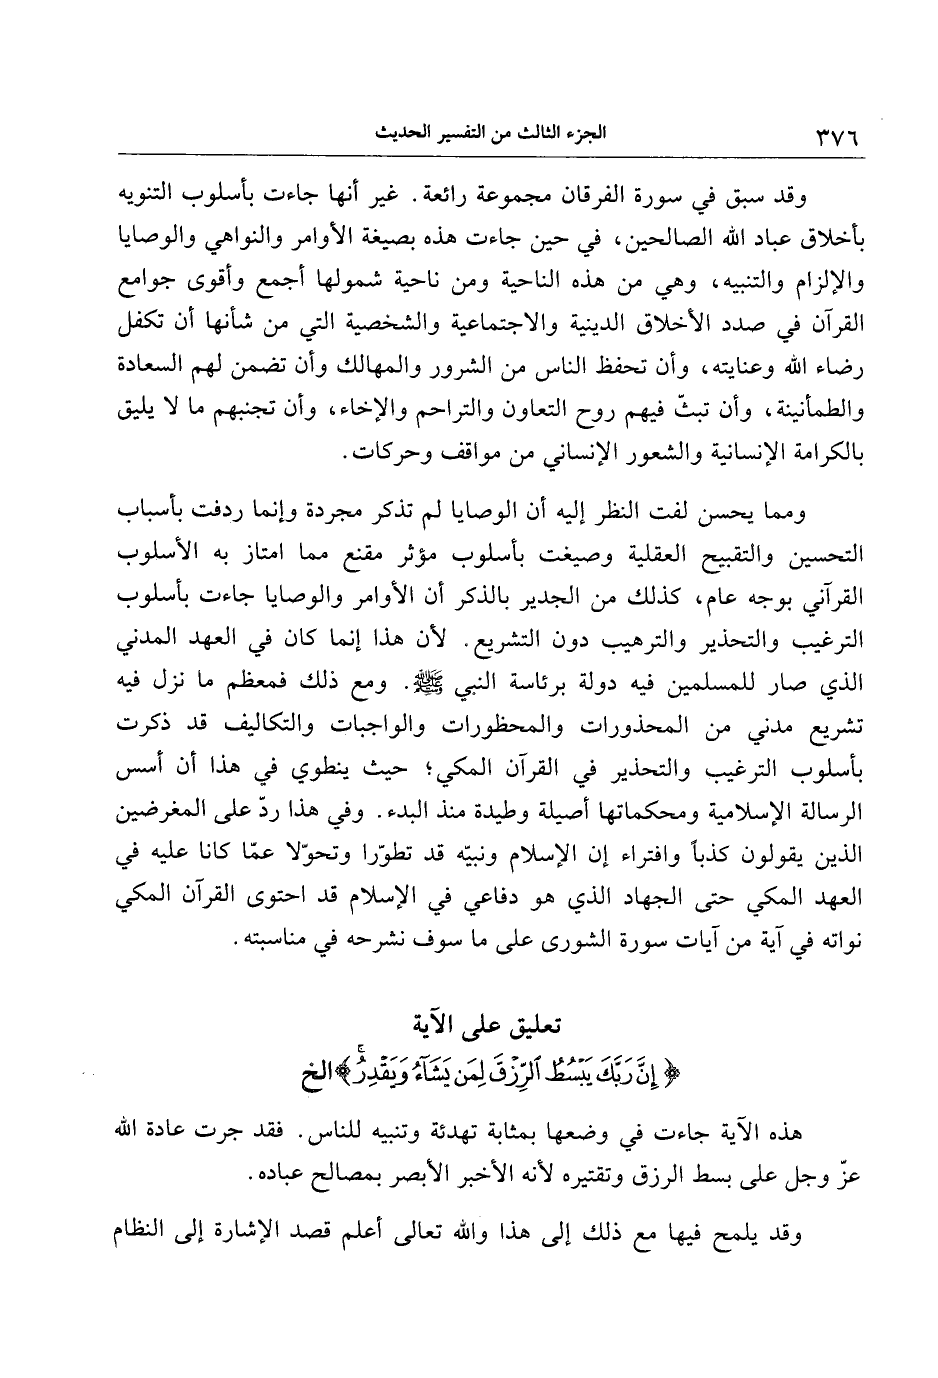 ٣٧٦
الجزء الثالث من التفسير الحديث
وقد سبق في سورة الفرقان مجموعة رائعة. غير أنها جاءت بأسلوب التنويه
بأخلاق عباد الله الصالحين، في حين جاءت هذه بصيغة الأوامر والنواهي والوصايا
والإلزام والتنبيه، وهي من هذه الناحية ومن ناحية شمولها أجمع وأقوى جوامع
القرآن في صدد الأخلاق الدينية والاجتماعية والشخصية التي من شأنها أن تكفل
رضاء الله وعنايته، وأن تحفظ الناس من الشرور والمهالك وأن تضمن لهم السعادة
والطمأنينة، وأن تبثّ فيهم روح التعاون والتراحم والإخاء، وأن تجنبهم ما لا يليق
بالكرامة الإنسانية والشعور الإنساني من مواقف وحركات.
ومما يحسن لفت النظر إليه أن الوصايا لم تذكر مجردة وإنما ردفت بأسباب
التحسين والتقبيح العقلية وصيغت بأسلوب مؤثر مقنع مما امتاز به الأسلوب
القرآني بوجه عام، كذلك من الجدير بالذكر أن الأوامر والوصايا جاءت بأسلوب
الترغيب والتحذير والترهيب دون التشريع. لأن هذا إنما كان في العهد المدني
الذي صار للمسلمين فيه دولة برئاسة النبي ﷺ. ومع ذلك فمعظم ما نزل فيه
تشريع مدني من المحذورات والمحظورات والواجبات والتكاليف قد ذكرت
بأسلوب الترغيب والتحذير في القرآن المكي؛ حيث ينطوي في هذا أن أسس
الرسالة الإسلامية ومحكماتها أصيلة وطيدة منذ البدء. وفي هذا ردّ على المغرضين
الذين يقولون كذباً وافتراء إن الإسلام ونبيّه قد تطوّرا وتحوّلا عمّا كانا عليه في
العهد المكي حتى الجهاد الذي هو دفاعي في الإسلام قد احتوى القرآن المكي
نواته في آية من آيات سورة الشورى على ما سوف نشرحه في مناسبته.
تعليق على الآية
﴿إِنَّ رَبَّكَ يَبْسُطُ ٱلرِّزْقَ لِمَن يَشَآءُ وَيَقْدِرُۚ﴾ الخ
هذه الآية جاءت في وضعها بمثابة تهدئة وتنبيه للناس. فقد جرت عادة الله
عزّ وجل على بسط الرزق وتقتيره لأنه الأخبر الأبصر بمصالح عباده.
وقد يلمح فيها مع ذلك إلى هذا والله تعالى أعلم قصد الإشارة إلى النظام